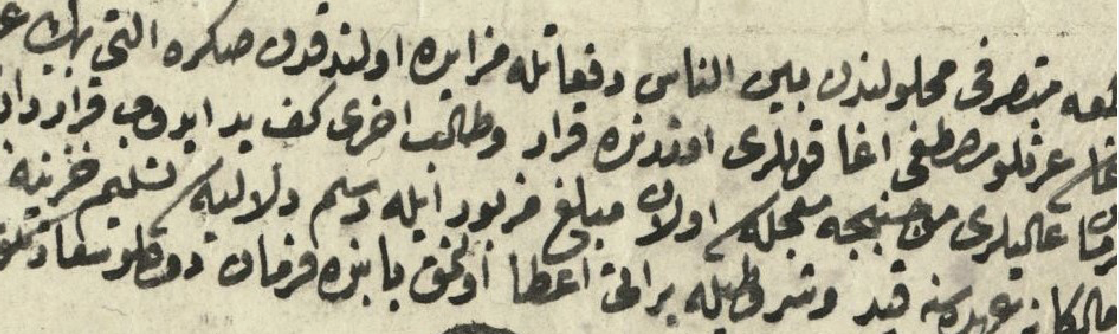 متصرفی محلولندن بین الناس دفعاتله مزایده اولندقدن صکره التی بیك
عزتلو مصطفی اغا قوللری اوزرنده قرار وطالب اخری کف ید ایدوب قرارداد
عالیلری موجبنجه معجله اولان مبلغ مزبور ایله رسم دلالیه تسلیم خزینه
قید وشروطیله براتی اعطا اولنمق بابنده فرمان دولتلو سعادتلو